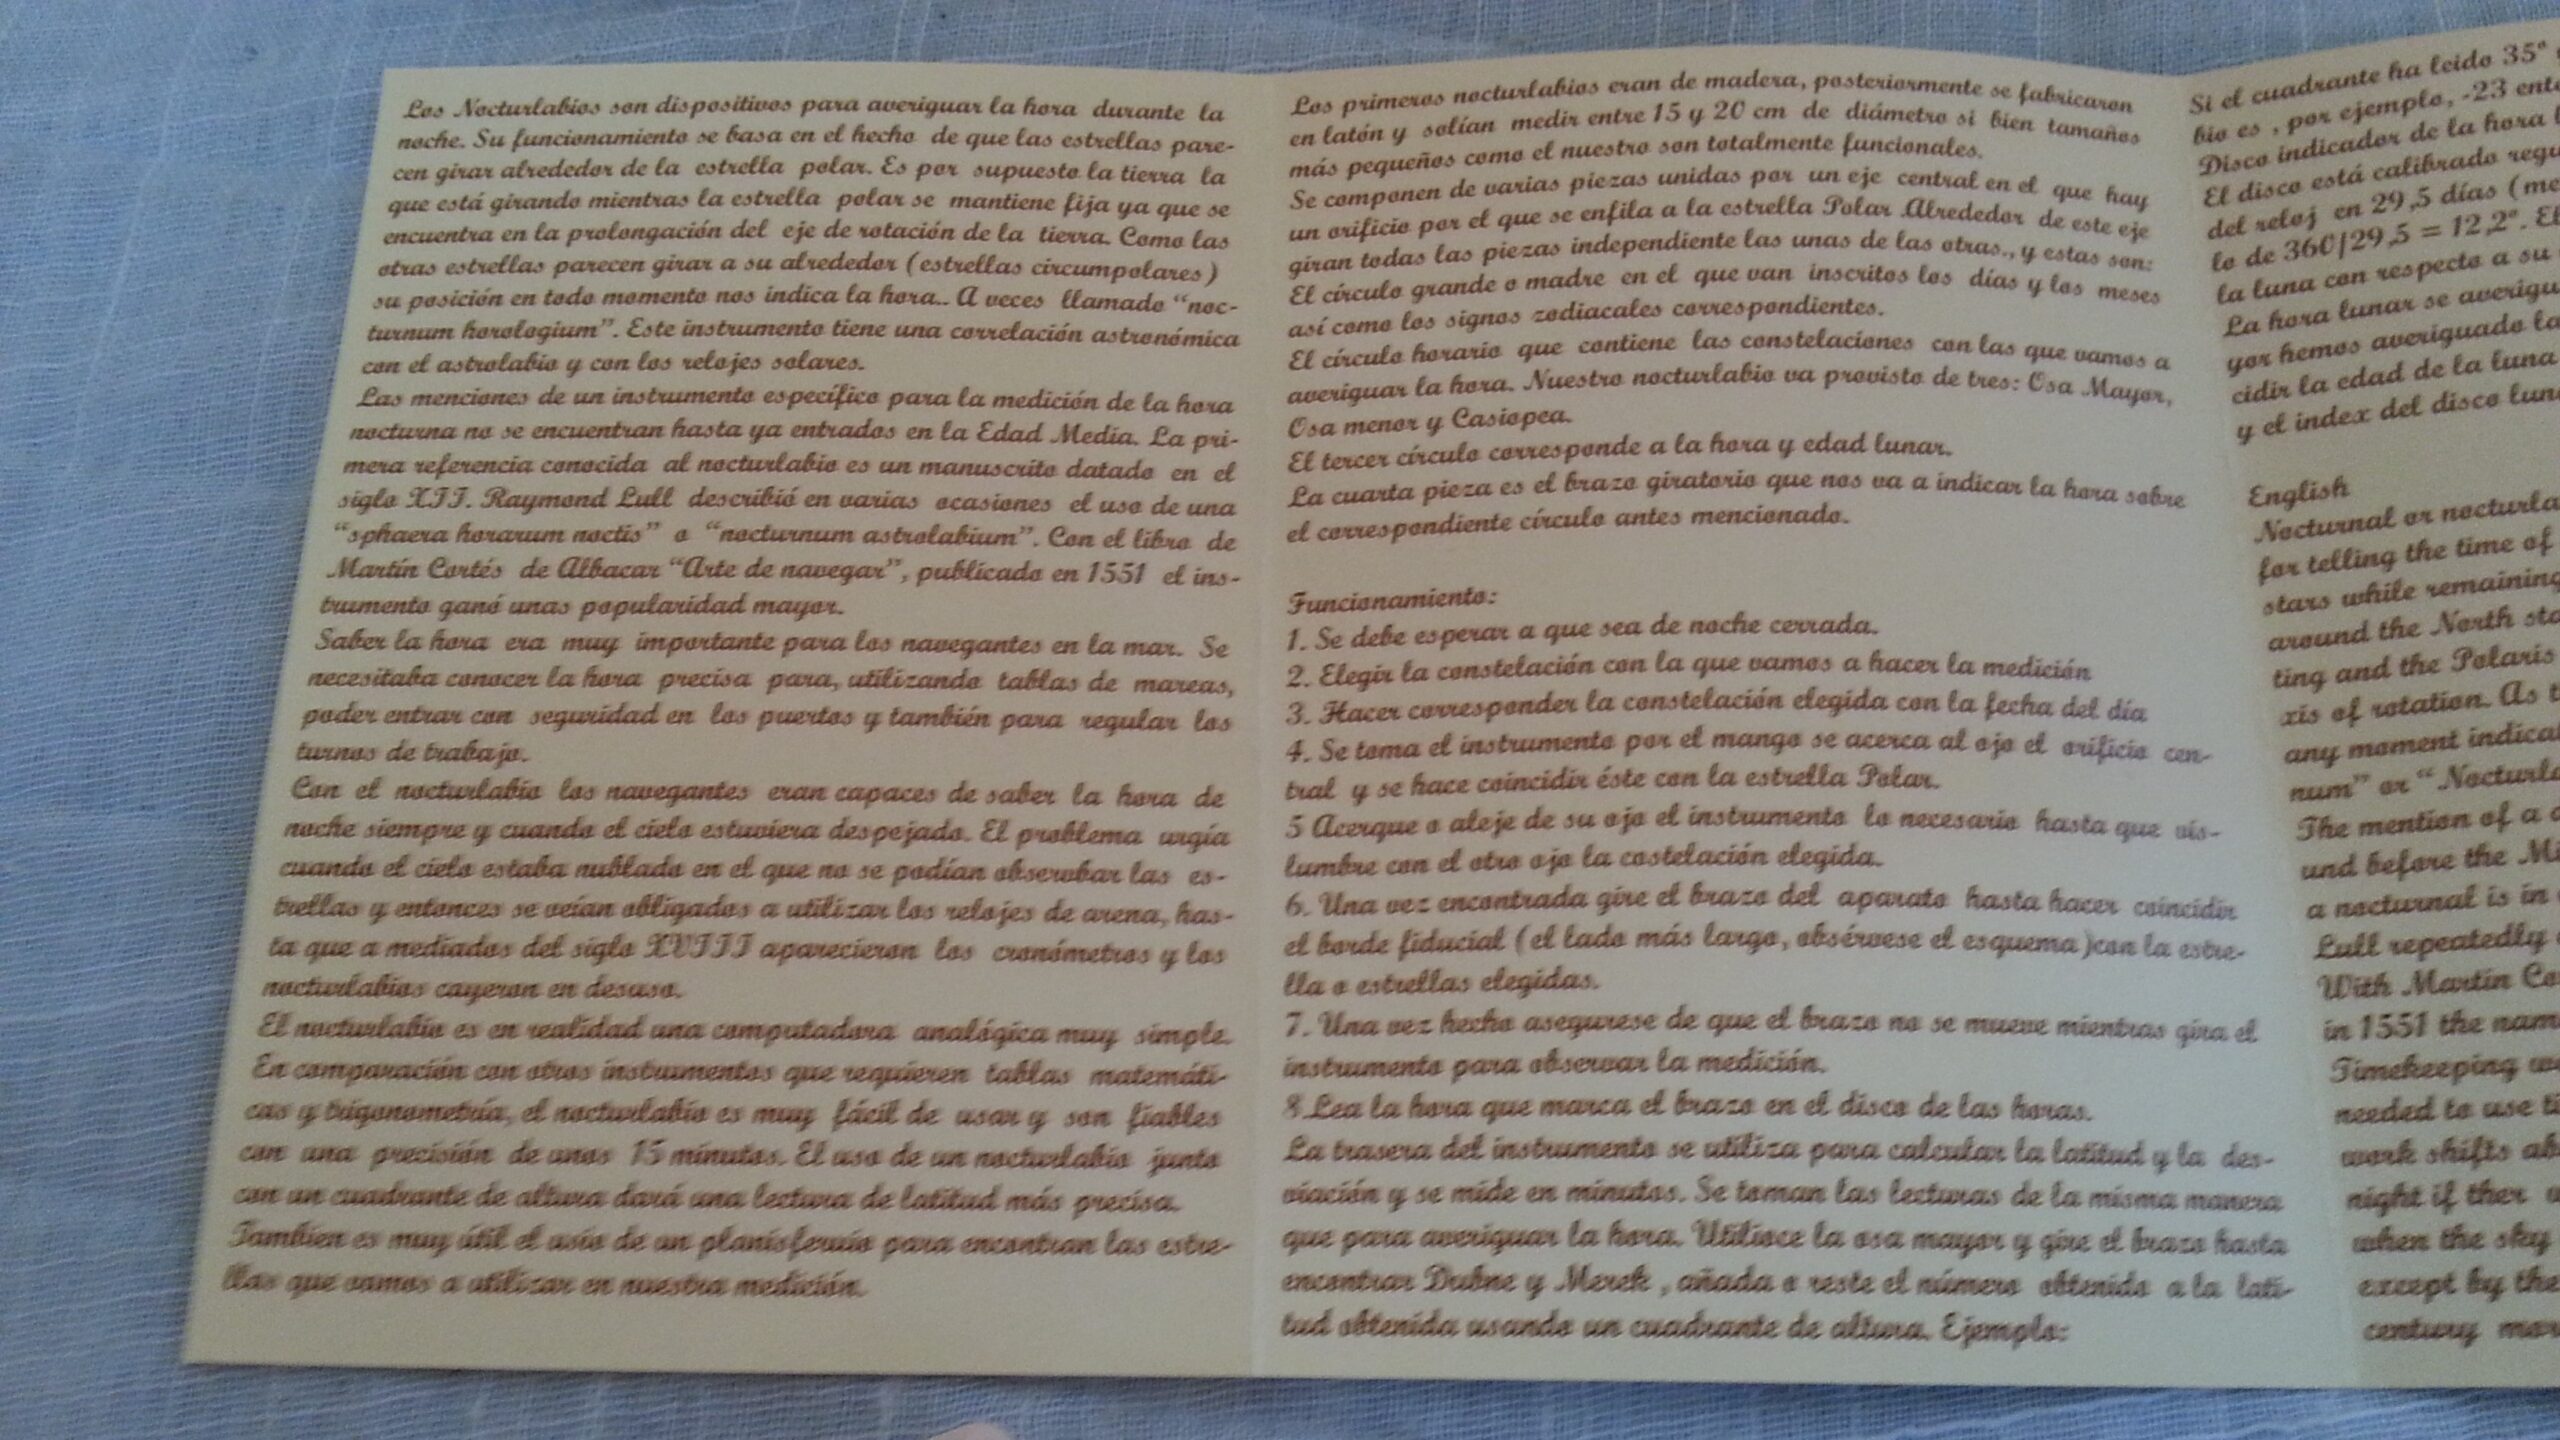 Los Nocturlabios son dispositivos para averiguar la hora durante la
noche. Su funcionamiento se basa en el hecho de que las estrellas pare-
cen girar alrededor de la estrella polar. Es por supuesto la tierra la
que está girando mientras la estrella polar se mantiene fija ya que se
encuentra en la prolongación del eje de rotación de la tierra. Como las
otras estrellas parecen girar a su alrededor (estrellas circumpolares)
su posición en todo momento nos indica la hora.. A veces llamado “noc-
turnum horologium”. Este instrumento tiene una correlación astronómica
con el astrolabio y con los relojes solares.
Las menciones de un instrumento específico para la medición de la hora
nocturna no se encuentran hasta ya entrados en la Edad Media. La pri-
mera referencia conocida al nocturlabio es un manuscrito datado en el
siglo XII. Raymond Lull describió en varias ocasiones el uso de una
“sphaera horarum noctis” o “nocturnum astrolabium”. Con el libro de
Martín Cortés de Albacar “Arte de navegar”, publicado en 1551 el ins-
trumento ganó unas popularidad mayor.
Saber la hora era muy importante para los navegantes en la mar. Se
necesitaba conocer la hora precisa para, utilizando tablas de mareas,
poder entrar con seguridad en los puertos y también para regular los
turnos de trabajo.
Con el nocturlabio los navegantes eran capaces de saber la hora de
noche siempre y cuando el cielo estuviera despejado. El problema urgía
cuando el cielo estaba nublado en el que no se podían obserobar las es-
trellas y entonces se veían obligados a utilizar los relojes de arena, has-
ta que a mediados del siglo XVIII aparecieron los cronómetros y los
nocturlabios cayeron en desuso.
El nocturlabio es en realidad una computadora analógica muy simple.
En comparación con otros instrumentos que requieren tablas matemáti-
cas y trigonometría, el nocturlabio es muy fácil de usar y son fiables
con una precisión de unos 15 minutos. El uso de un nocturlabio junto
con un cuadrante de altura dará una lectura de latitud más precisa.
Tambien es muy útil el usio de un planisferuio para encontran las estre-
llas que vamos a utilizar en nuestra medición.
Los primeros nocturlabios eran de madera, posteriormente se fabricaron
en latón y solían medir entre 15 y 20 cm de diámetro si bien tamaños
más pequeños como el nuestro son totalmente funcionales.
Se componen de varias piezas unidas por un eje central en el que hay
un orificio por el que se enfila a la estrella Polar Alrededor de este eje
giran todas las piezas independiente las unas de las otras., y estas son:
El círculo grande o madre en el que van inscritos los días y los meses
así como los signos zodiacales correspondientes.
El círculo horario que contiene las constelaciones con las que vamos a
averiguar la hora. Nuestro nocturlabio va provisto de tres: Osa Mayor,
Osa menor y Casiopea.
El tercer círculo corresponde a la hora y edad lunar.
La cuarta pieza es el brazo giratorio que nos va a indicar la hora sobre
el correspondiente círculo antes mencionado.
Funcionamiento:
1. Se debe esperar a que sea de noche cerrada.
2. Elegir la constelación con la que vamos a hacer la medición
3. Hacer corresponder la constelación elegida con la fecha del día
4. Se toma el instrumento por el mango se acerca al ojo el orificio cen-
tral y se hace coincidir éste con la estrella Polar.
5 Acerque o aleje de su ojo el instrumento lo necesario hasta que vis-
lumbre con el otro ojo la costelación elegida.
6. Una vez encontrada gire el brazo del aparato hasta hacer coincidir
el borde fiducial (el lado más largo, obsérvese el esquema)con la estre-
lla o estrellas elegidas.
7. Una vez hecho asegurese de que el brazo no se mueve mientras gira el
instrumento para observar la medición.
8.Lea la hora que marca el brazo en el disco de las horas.
La trasera del instrumento se utiliza para calcular la latitud y la des-
viación y se mide en minutos. Se toman las lecturas de la misma manera
que para averiguar la hora. Utilioce la osa mayor y gire el brazo hasta
encontrar Dubne y Merek , añada o reste el número obtenido a la lati-
tud obtenida usando un cuadrante de altura. Ejemplo:
Si el cuadrante ha leido 35º
bio es , por ejemplo, -23
Disco indicador de la hora
El disco está calibrado
del reloj en 29,5 días
lo de 360/29,5 = 12,2º.
la luna con respecto a su
La hora lunar se
yor hemos averiguado la
cidir la edad de la luna
y el index del disco
English
Nocturnal or
for telling the time of
stars while remaining
around the North
ting and the Polaris
xis of rotation. As
any moment
num” or “
The mention of a
und before the
a nocturnal is in
Lull repeatedly
With Martin
in 1551 the
Timekeeping
needed to use
work shifts
night if ther
when the sky
except by the
century